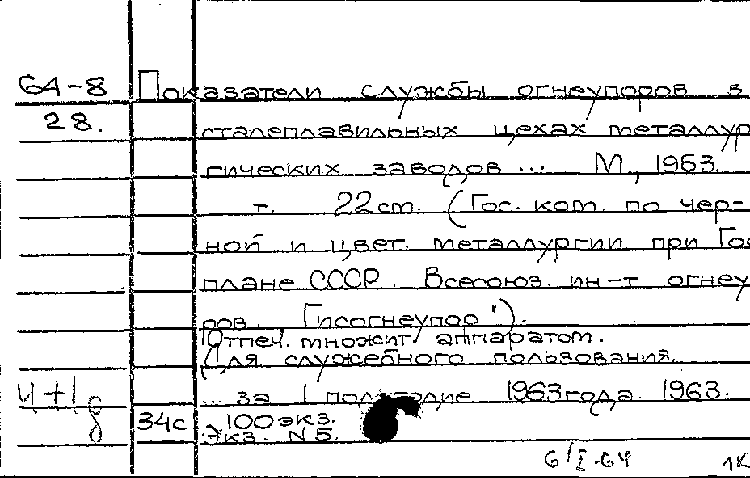 6А-8 Показатели службы огнеупоров в
28. сталеплавильных цехах металлур
гических заводов ... М., 1963.
т. 22 см. (Гос. ком. по чер-
ной и цвет. металлургии при Гос
плане СССР. Всесоюз. ин-т огнеу
ров. "Гипсогнеупор").
Отпеч. множит. аппаратом.
Для служебного пользования.
... за I полугодие 1963 года. 1963.
34с., 100 экз.
Экз. N 5.
Ч+1д
6/I-64 1К